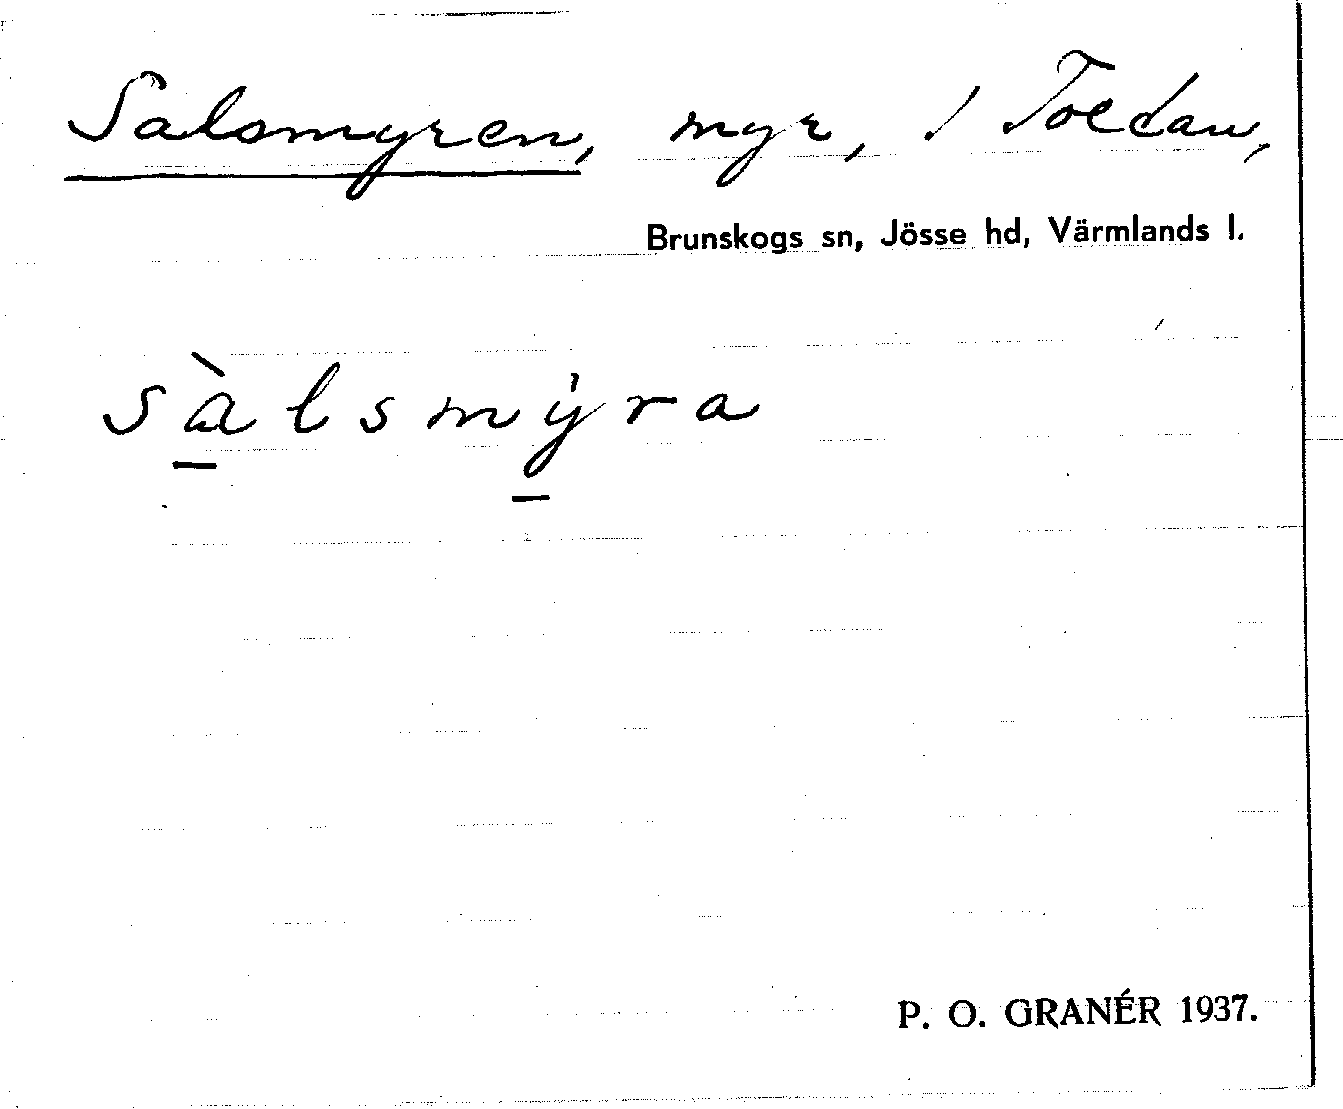 Salsmyren, myr, / Toedan,
Brunskogs sn, Jösse hd, Värmlands l.
sàlsmýra
P. O. GRANÉR 1937.